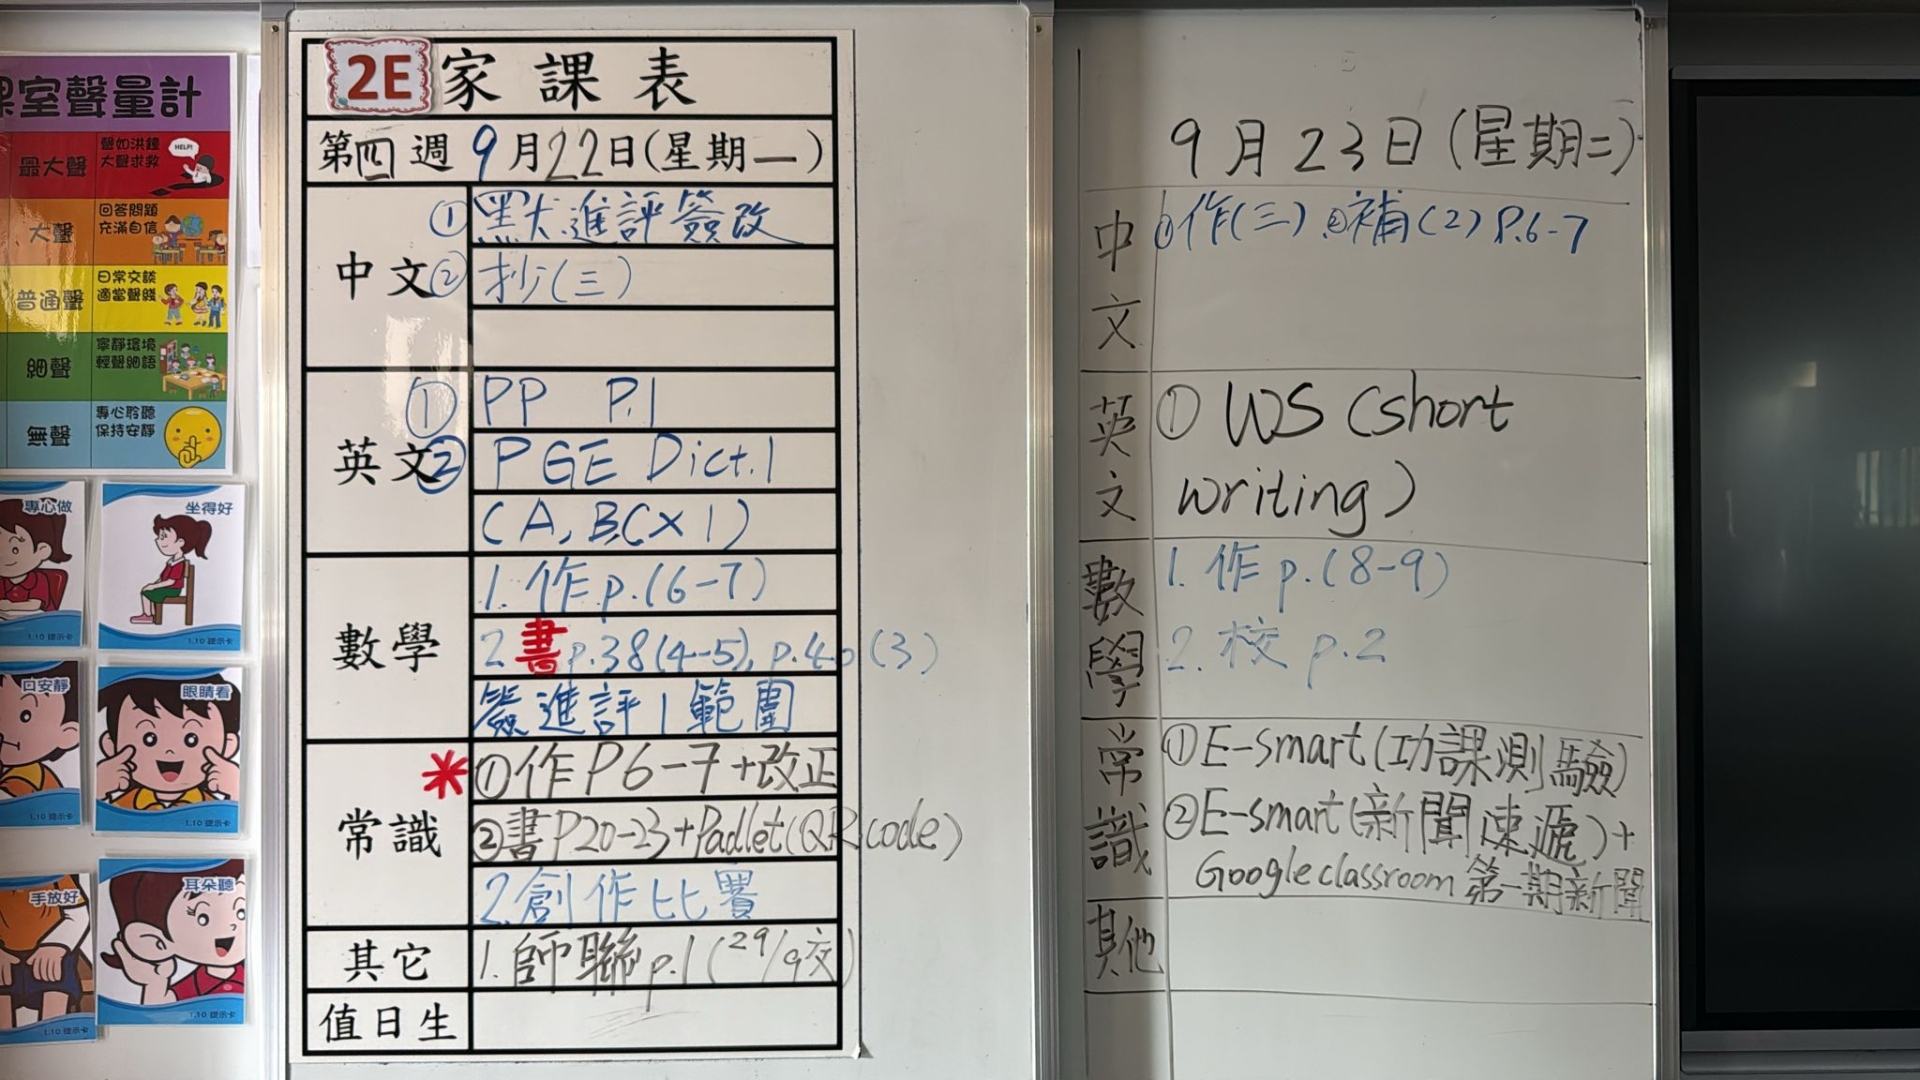 課室聲量計
最大聲
聲如洪鐘
大聲求救
HELP!
大聲
回答問題
充滿自信
普通聲
日常交談
適當聲綫
細聲
寧靜環境
輕聲細語
無聲
專心聆聽
保持安靜
專心做
1.10 提示卡
坐得好
1.10 提示卡
口安靜
1.10 提示卡
眼睛看
1.10 提示卡
手放好
1.10 提示卡
耳朵聽
1.10 提示卡
2E 家課表
第四週 9月22日(星期一)
中文
① 默進評簽改
② 抄(三)
英文
① PP P.1
② PGE Dict.1
(A, B, C×1)
數學
1. 作 p.(6-7)
2. 書 p.38(4-5), p.40(3)
簽進評1範圍
常識
* ①作P6-7+改正
②書P20-23+Padlet(QR code)
2. 創作比賽
其它
1. 師聯 p.1 (29/9交)
值日生
9月23日(星期二)
中文
①作(三) ②補(2) P.6-7
英文
① WS (short
writing)
數學
1. 作 p.(8-9)
2. 校 p.2
常識
①E-smart(功課測驗)
②E-smart(新聞速遞)+
Google classroom 第一期新聞
其他